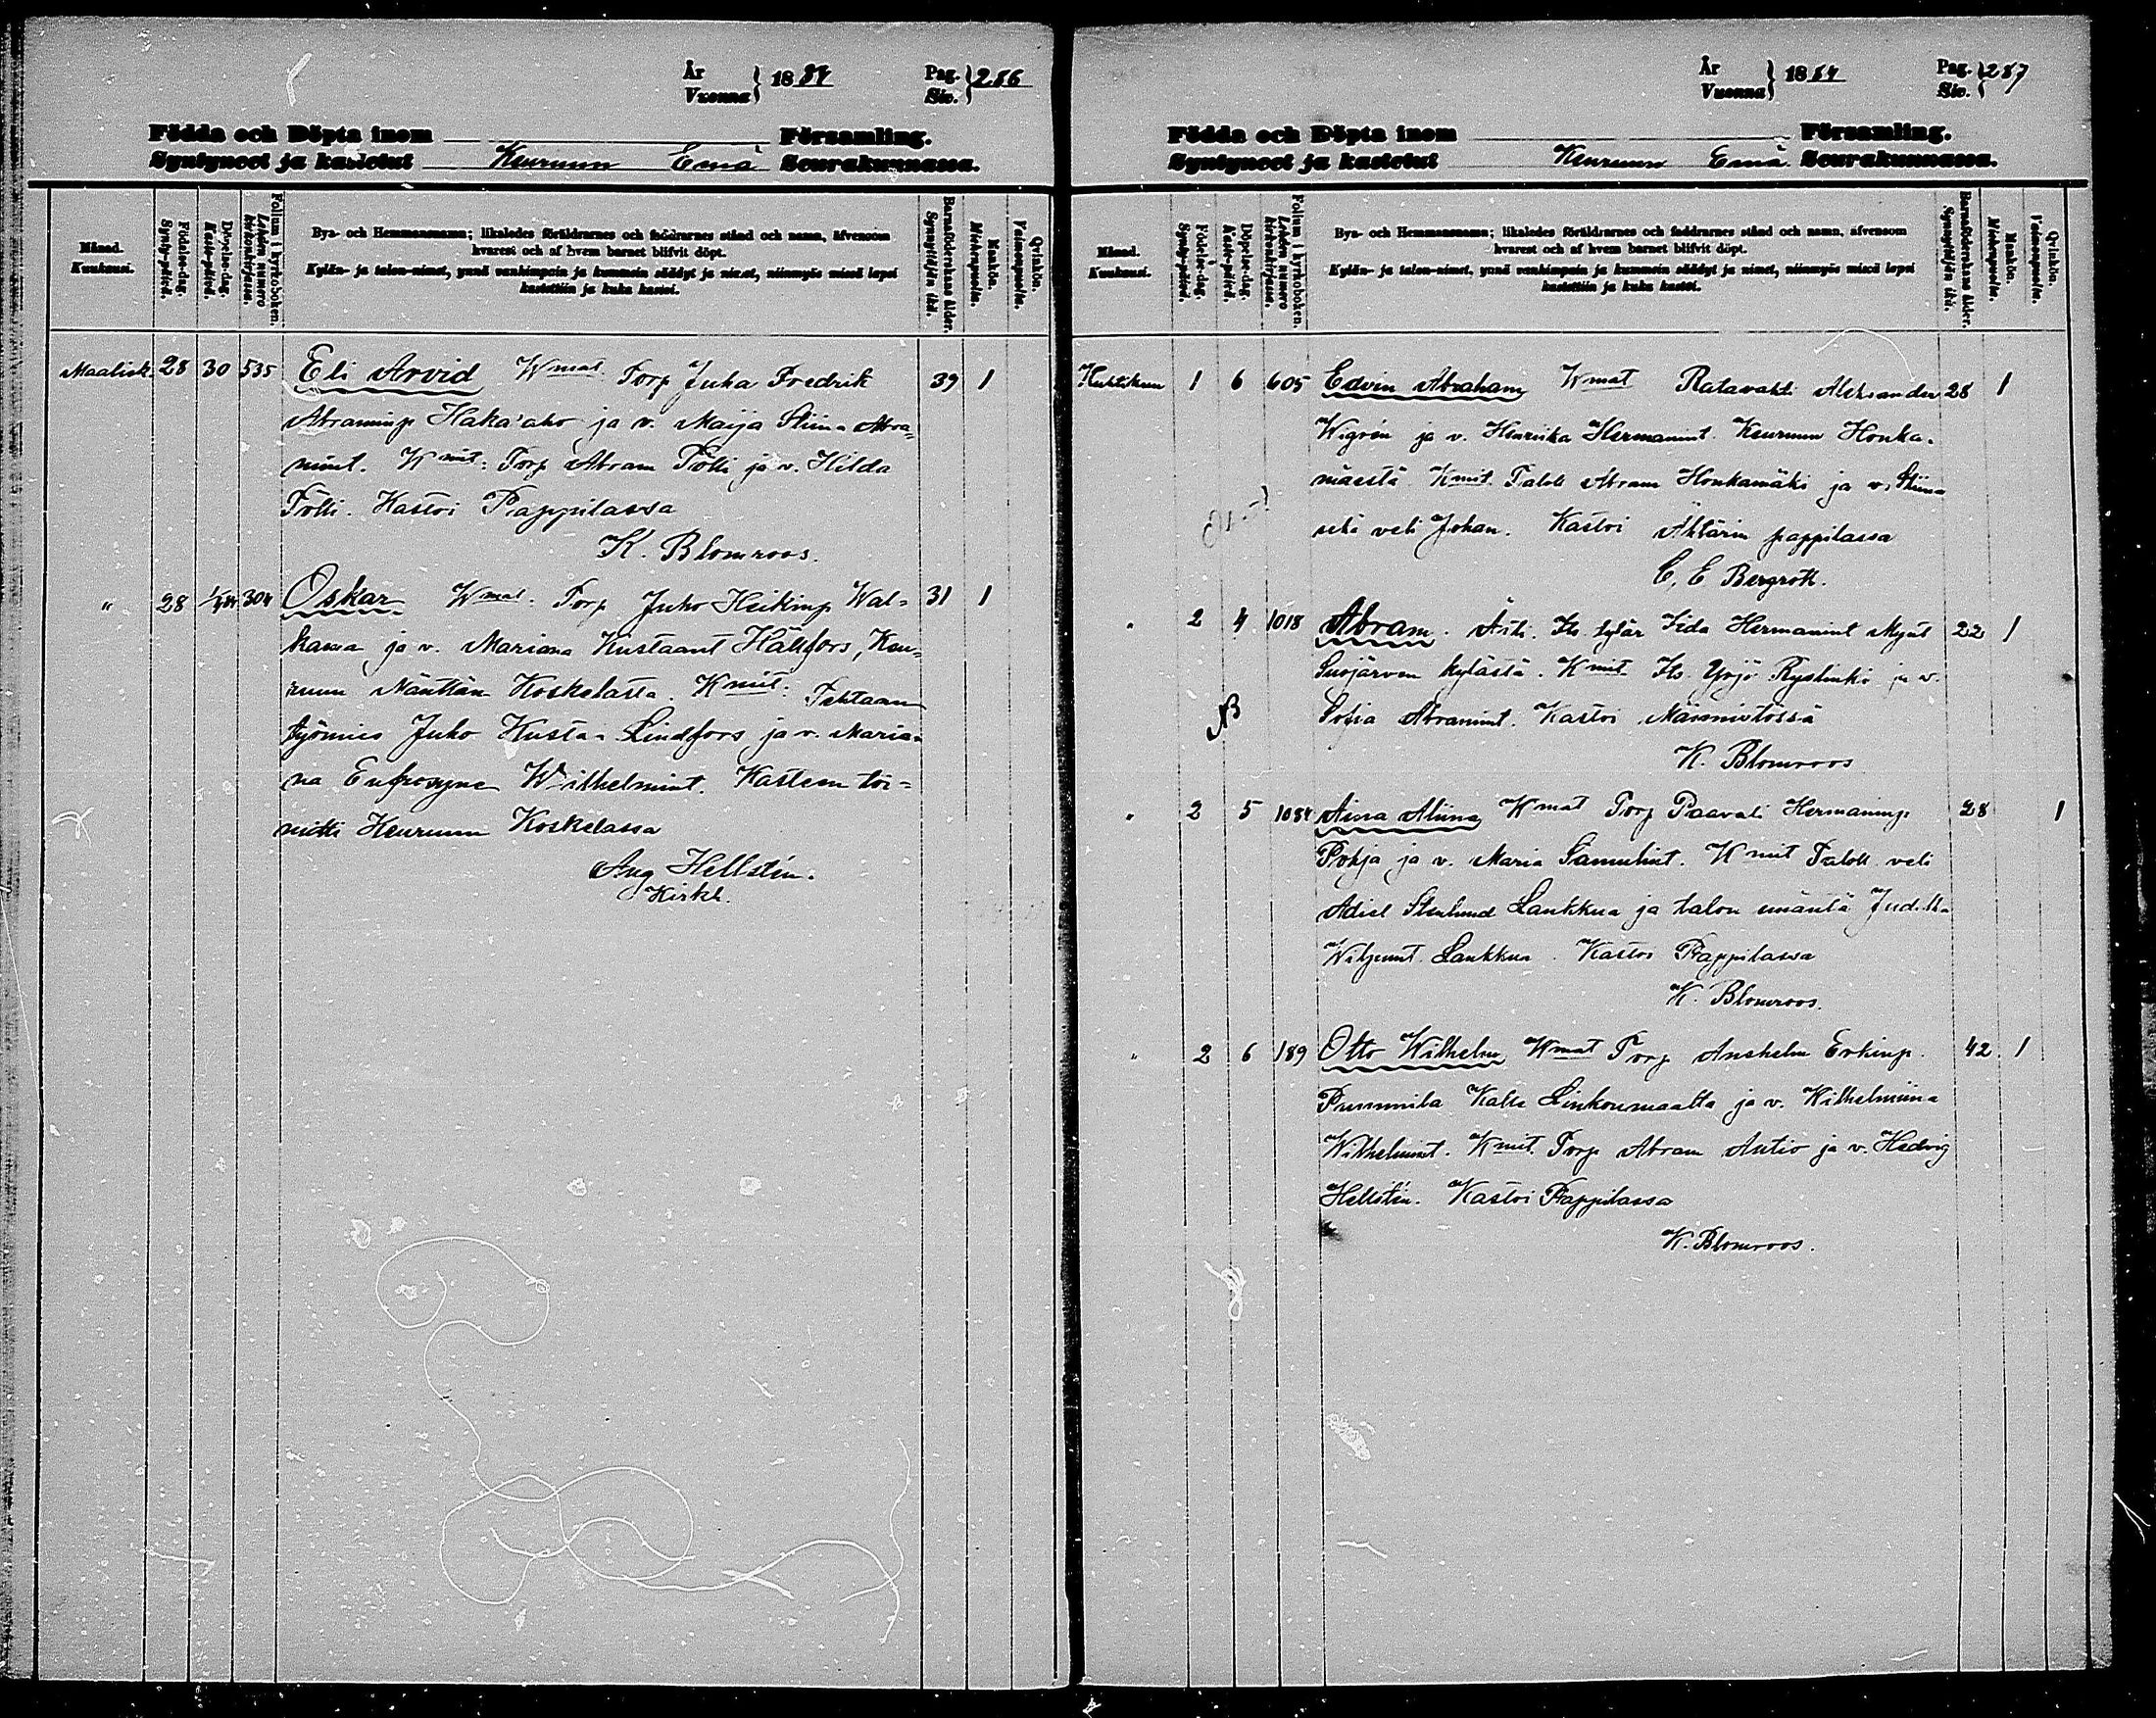 År
Vuonna } 1884
Pag.
Siv. } 286
Födda och Döpta inom Församling.
Syntyneet ja kastetut Keuruun Emä Seurakunnassa.
Månad.
Kuukausi.
Födelse-dag.
Synty-päivä.
Döpelse-dag.
Kaste-päivä.
Folium i kyrkoboken.
Lehden numero kirkonkirjassa.
Bya- och Hemmansnamn; likaledes föräldrarnes och faddrarnes stånd och namn, äfvensom
hvarest och af hvem barnet blifvit döpt.
Kylän- ja talon-nimet, ynnä vanhimpain ja kummein säädyt ja nimet, niinmyös missä lapsi
kastettiin ja kuka kastoi.
Barnaföderskans ålder.
Synnyttäjän ikä.
Mankön.
Miehenpuolta.
Qvinkön.
Vaimonpuolta.
Maalisk. 28 30 535 Eli Arvid Wmat. Torp Juha Fredrik 39 1
Abraminp Haka'aho ja v. Maija Stiina Abra=
mint. Kmit: Torp Abram Pölli ja v. Hilda
Pölli. Kastoi Pappilassa
K. Blomroos.
" 28 304 Oskar Wmat. Torp Juho Heikinp Wal= 31 1
kama ja v. Mariana Kustaant Hällfors, Keu=
ruun Mänttän Koskelasta. Kmit: Tehtaan
työmies Juho Kusta Lindfors ja v. Maria=
na Eufrosyne Wilhelmint. Kasteen toi=
mitti Keuruun Koskelassa
Aug Hellstén.
Kirkk.
År
Vuonna } 1884
Pag.
Siv. } 287
Födda och Döpta inom Församling.
Syntyneet ja kastetut Keuruun Emä Seurakunnassa.
Månad.
Kuukausi.
Födelse-dag.
Synty-päivä.
Döpelse-dag.
Kaste-päivä.
Folium i kyrkoboken.
Lehden numero kirkonkirjassa.
Bya- och Hemmansnamn; likaledes föräldrarnes och faddrarnes stånd och namn, äfvensom
hvarest och af hvem barnet blifvit döpt.
Kylän- ja talon-nimet, ynnä vanhimpain ja kummein säädyt ja nimet, niinmyös missä lapsi
kastettiin ja kuka kastoi.
Barnaföderskans ålder.
Synnyttäjän ikä.
Mankön.
Miehenpuolta.
Qvinkön.
Vaimonpuolta.
Huhtikuu 1 6 605 Edvin Abraham Wmat Ratavahti Aleksander 28 1
Wigrén ja v. Henriika Hermanint. Keuruun Honka=
mäestä Kmit. Taloll Abram Honkamäki ja v. Stiina
sekä veli Johan. Kastoi Ähtärin pappilassa
C. E Bergroth.
" 2 4 1018 Abram. Äiti. Its. tytär Iida Hermanint Mynt 22 1
Suojärven kylästä. Kmit. Its. Yrjö Ryslinki ja v.
Sofia Abramint. Kastoi Männistössä
K. Blomroos
" 2 5 1084 Aina Aliina Wmat Torp Paavali Hermaninp 28 1
Pohja ja v. Maria Samulint. Kmit Taloll. veli
Adiel Stenlund Lankkua ja talon emäntä Judith
Wiljamint. Lankkua. Kastoi Pappilassa
K. Blomroos.
" 2 6 189 Otto Wilhelm Wmat Torp Anshelm Erkinp. 42 1
Pummila Kalle Linkonmaalta ja v. Wilhelmiina
Wilhelmint. Kmit. Torp Abram Autio ja v. Hedvig
Hellstén. Kastoi Pappilassa
K. Blomroos.